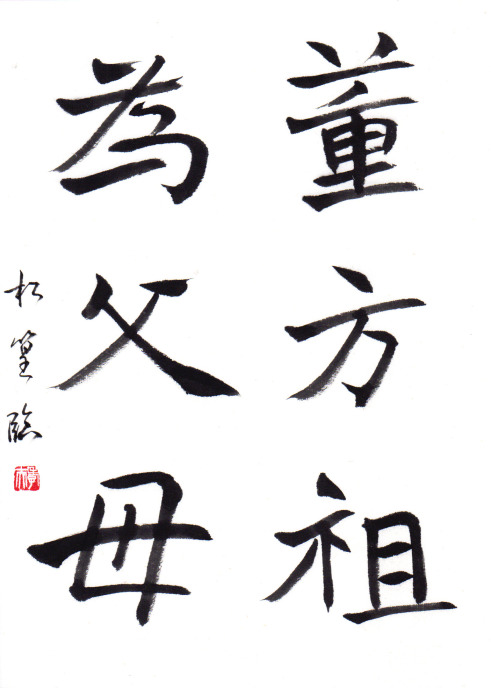 董方祖
為父母
松篁臨